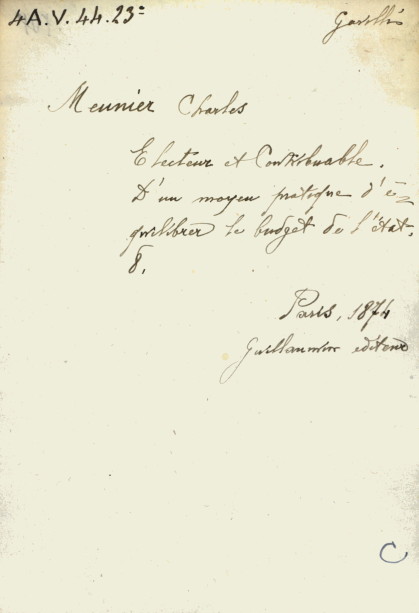 4A.V.44.23=
Meunier Charles
Electeur et Contribuable.
D'un moyen pratique d'é-
quilibrer le budget de l'état.
8.
Paris, 1874
Guillaumin editeur
C